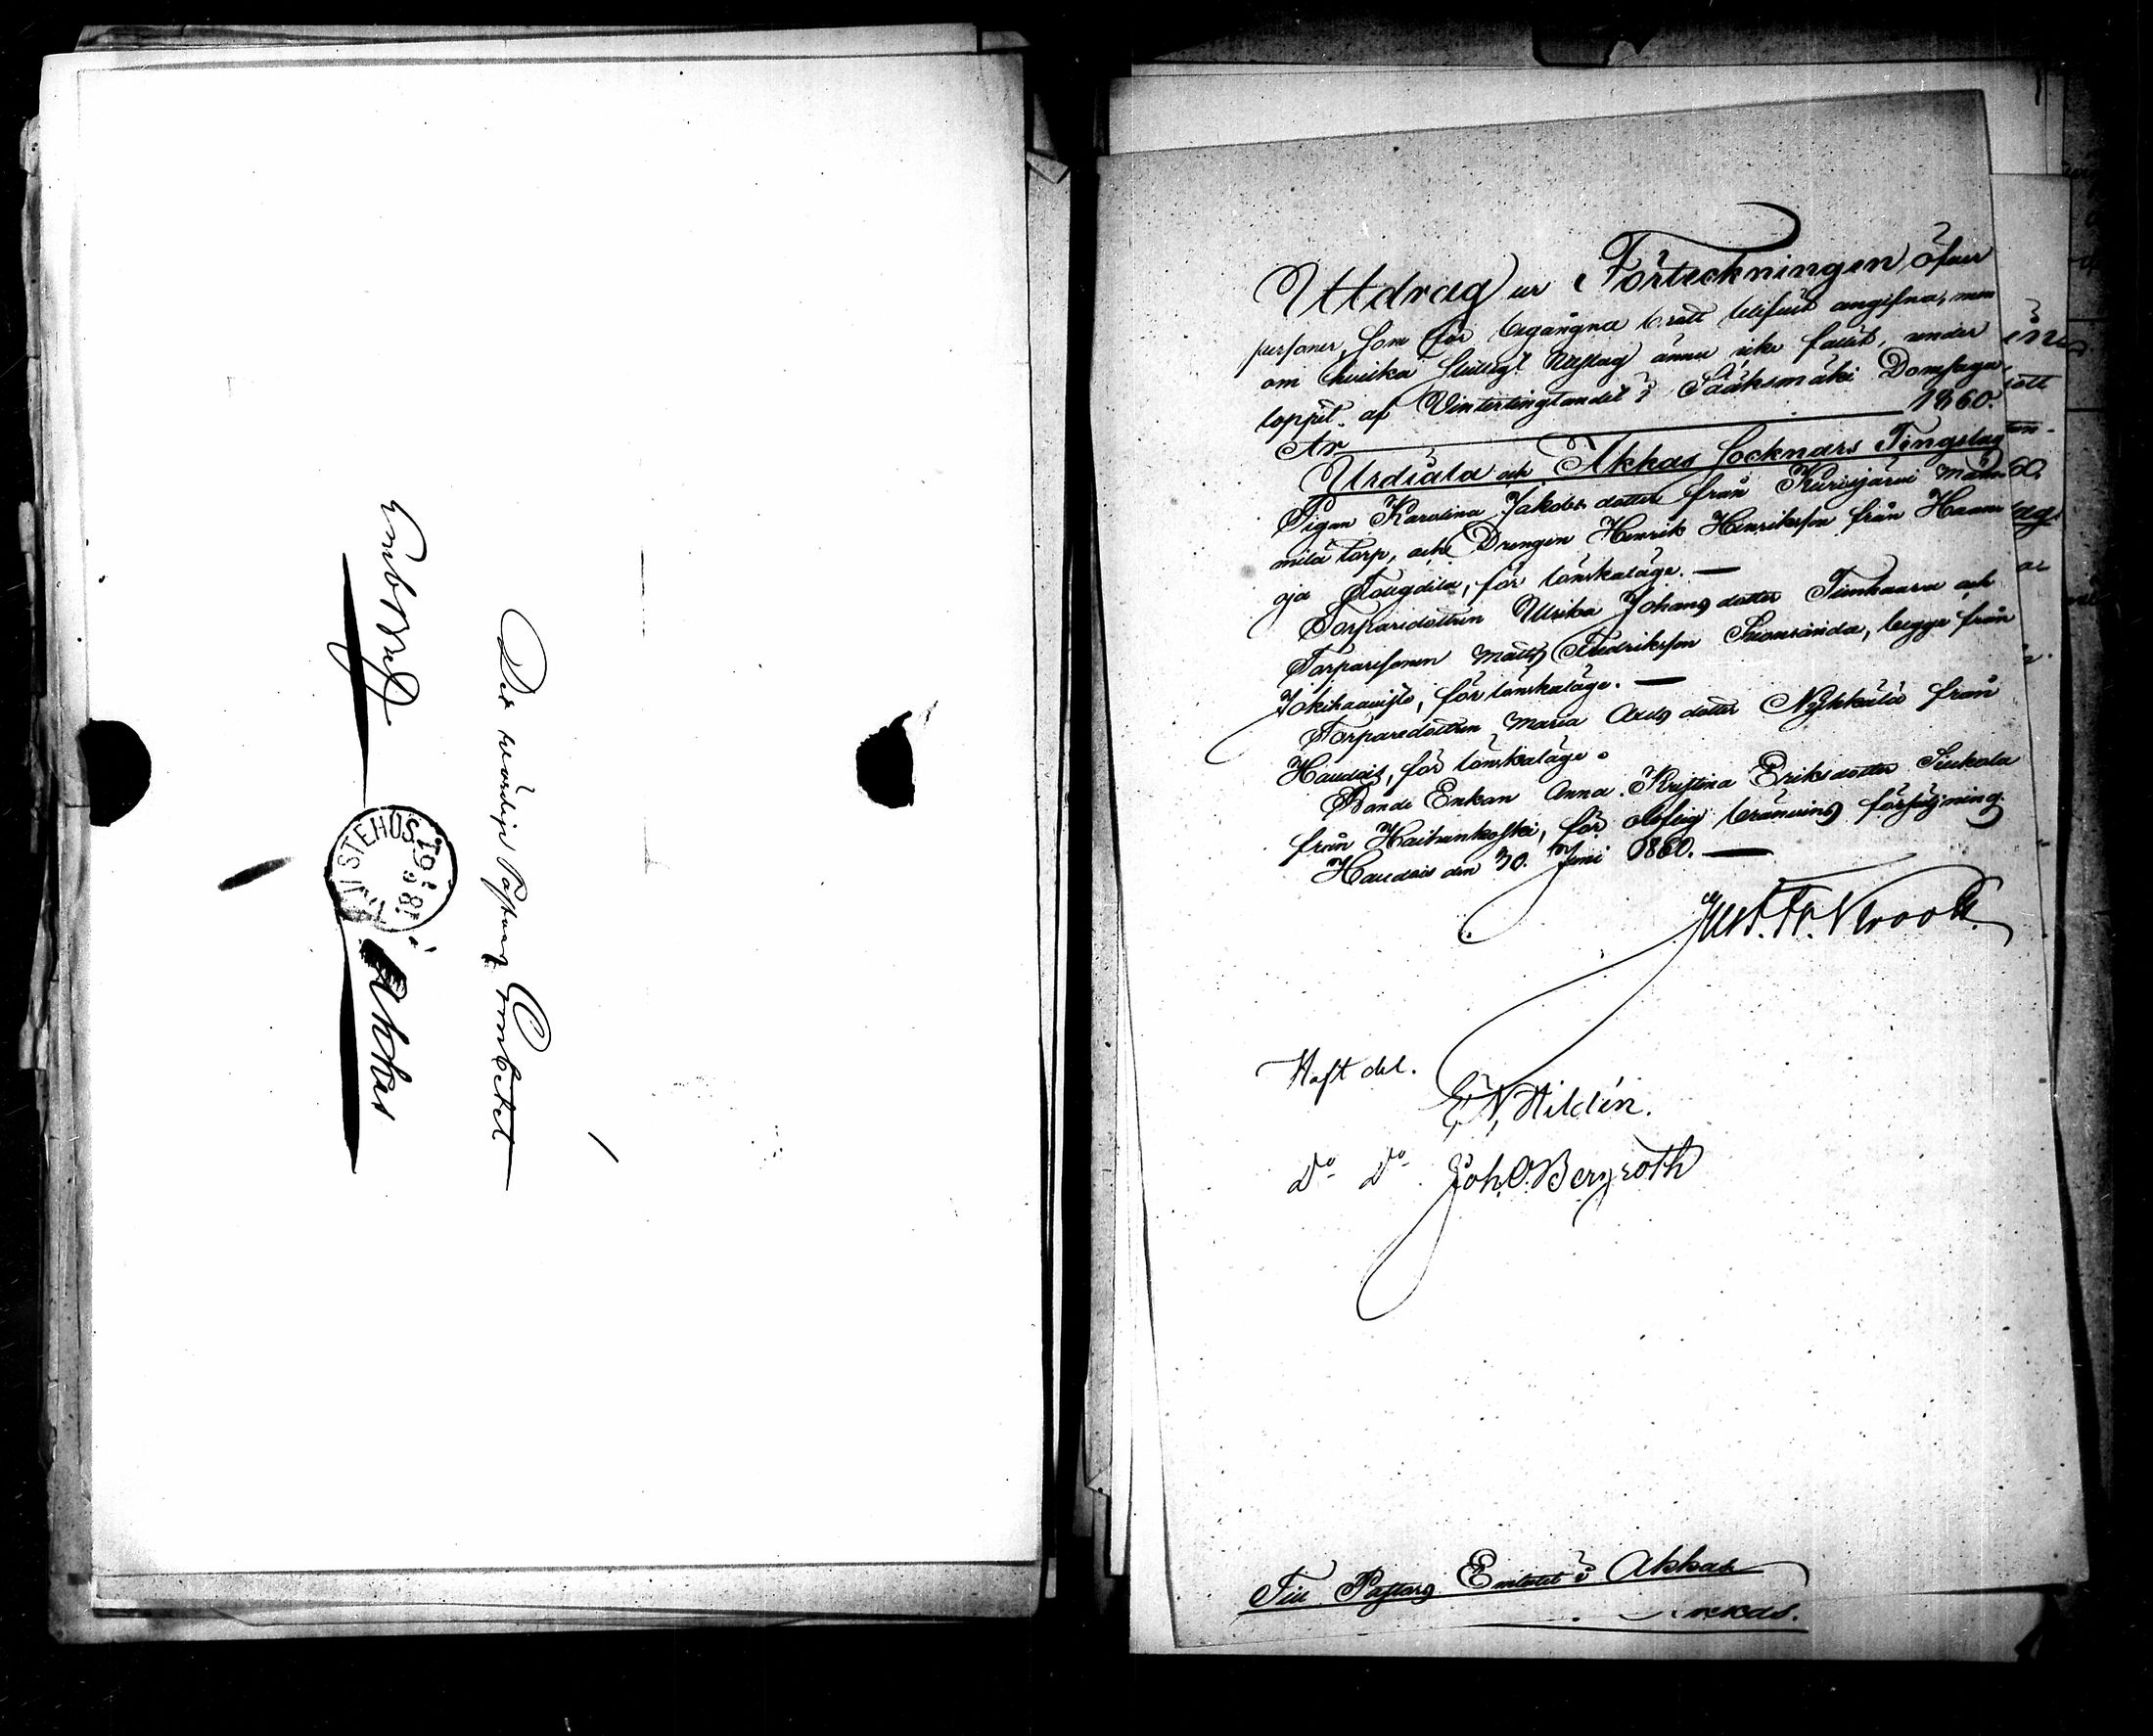 Det wördige Pastors Embetet
i
Akkas
TAVASTEHUS
Utdrag ur Förteckningen öfver
personer, som för begångna brott blifvit angifna, men
om hvilka slutligt utslag ännu icke fallit, under
loppet af Vintertingtandet i Sääksmäki Domsaga,
År 1860.
Urdiala och Akkas Socknars Tingslag
Pigan Karolina Jakobsdotter från Kurvijärvi
mila torp, och Drengen Henrik Henriksson från Haam
oja för lönskaläge. —
Torparedottren Ulrika Johansdotter Tiinkaara och
Torparesonen Matts Fredriksson begge från
för lönskaläge. —
Torparedottren Maria dotter Nykkälä från
Haudois, för lönskaläge.
Bonde Enkan Anna Kristina Eriksdotter Siukola
från Haihunkoski, för oloflig brännvins försäljning.
Haudois den 30. Juni 1860. —
Gust. Fr. Krook.
Haft del.
E. N. Hildén.
Do Do Joh. O. Bergroth
Till Pastors Embetet i Akkas
Akkas.